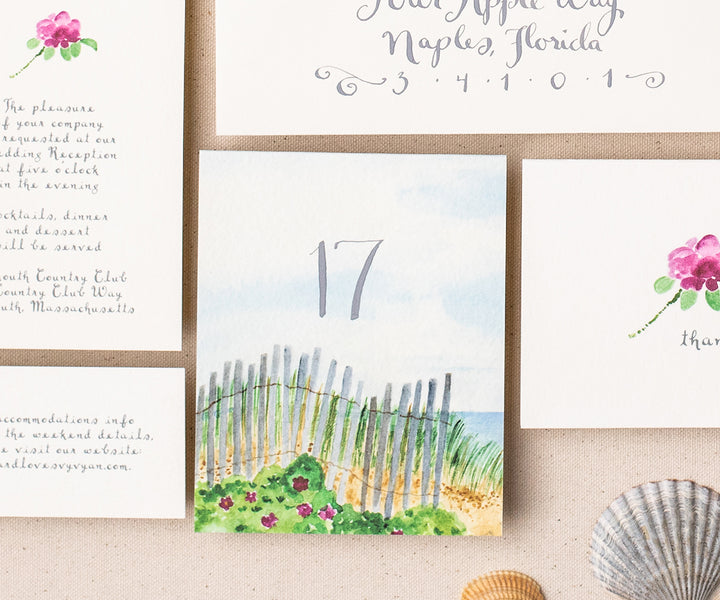 Four Apple Way
Naples, Florida
3 · 4 · 1 · 0 · 1
The pleasure
of your company
requested at our
edding Reception
at five o'clock
in the evening
ocktails, dinner
and dessert
will be served
outh Country Club
Country Club Way
outh, Massachusetts
17
than
accommodations info
the weekend details,
e visit our website:
ardlovesvyvyan.com.